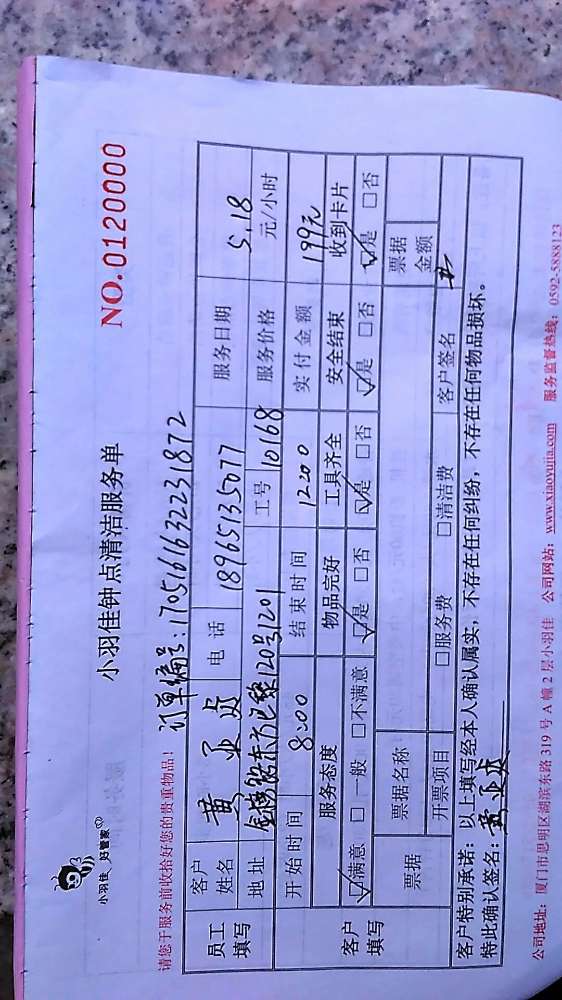 小羽佳 好管家
小羽佳钟点清洁服务单
NO.0120000
请您于服务前收拾好您的贵重物品!
订单编号:170516163223187 2
员工填写
客户姓名 黄亚贞 电话 18965135077 服务日期 5.18
地址 东方巴黎120号1201 工号 10168 服务价格 元/小时
客户填写
开始时间 8:00 结束时间 1200 实付金额 199元
服务态度 物品完好 工具齐全 安全结束 收到卡片
☑满意 □一般 □不满意 ☑是 □否 ☑是 □否 ☑是 □否 ☑是 □否
票据 票据名称 票据金额
开票项目 □服务费 □清洁费 客户签名
客户特别承诺:以上填写经本人确认属实,不存在任何纠纷,不存在任何物品损坏。
特此确认签名:黄亚贞
公司地址:厦门市思明区湖滨东路 319 号 A 幢 2 层小羽佳 公司网站:www.xiaoyujia.com 服务监督热线:0592-5888123